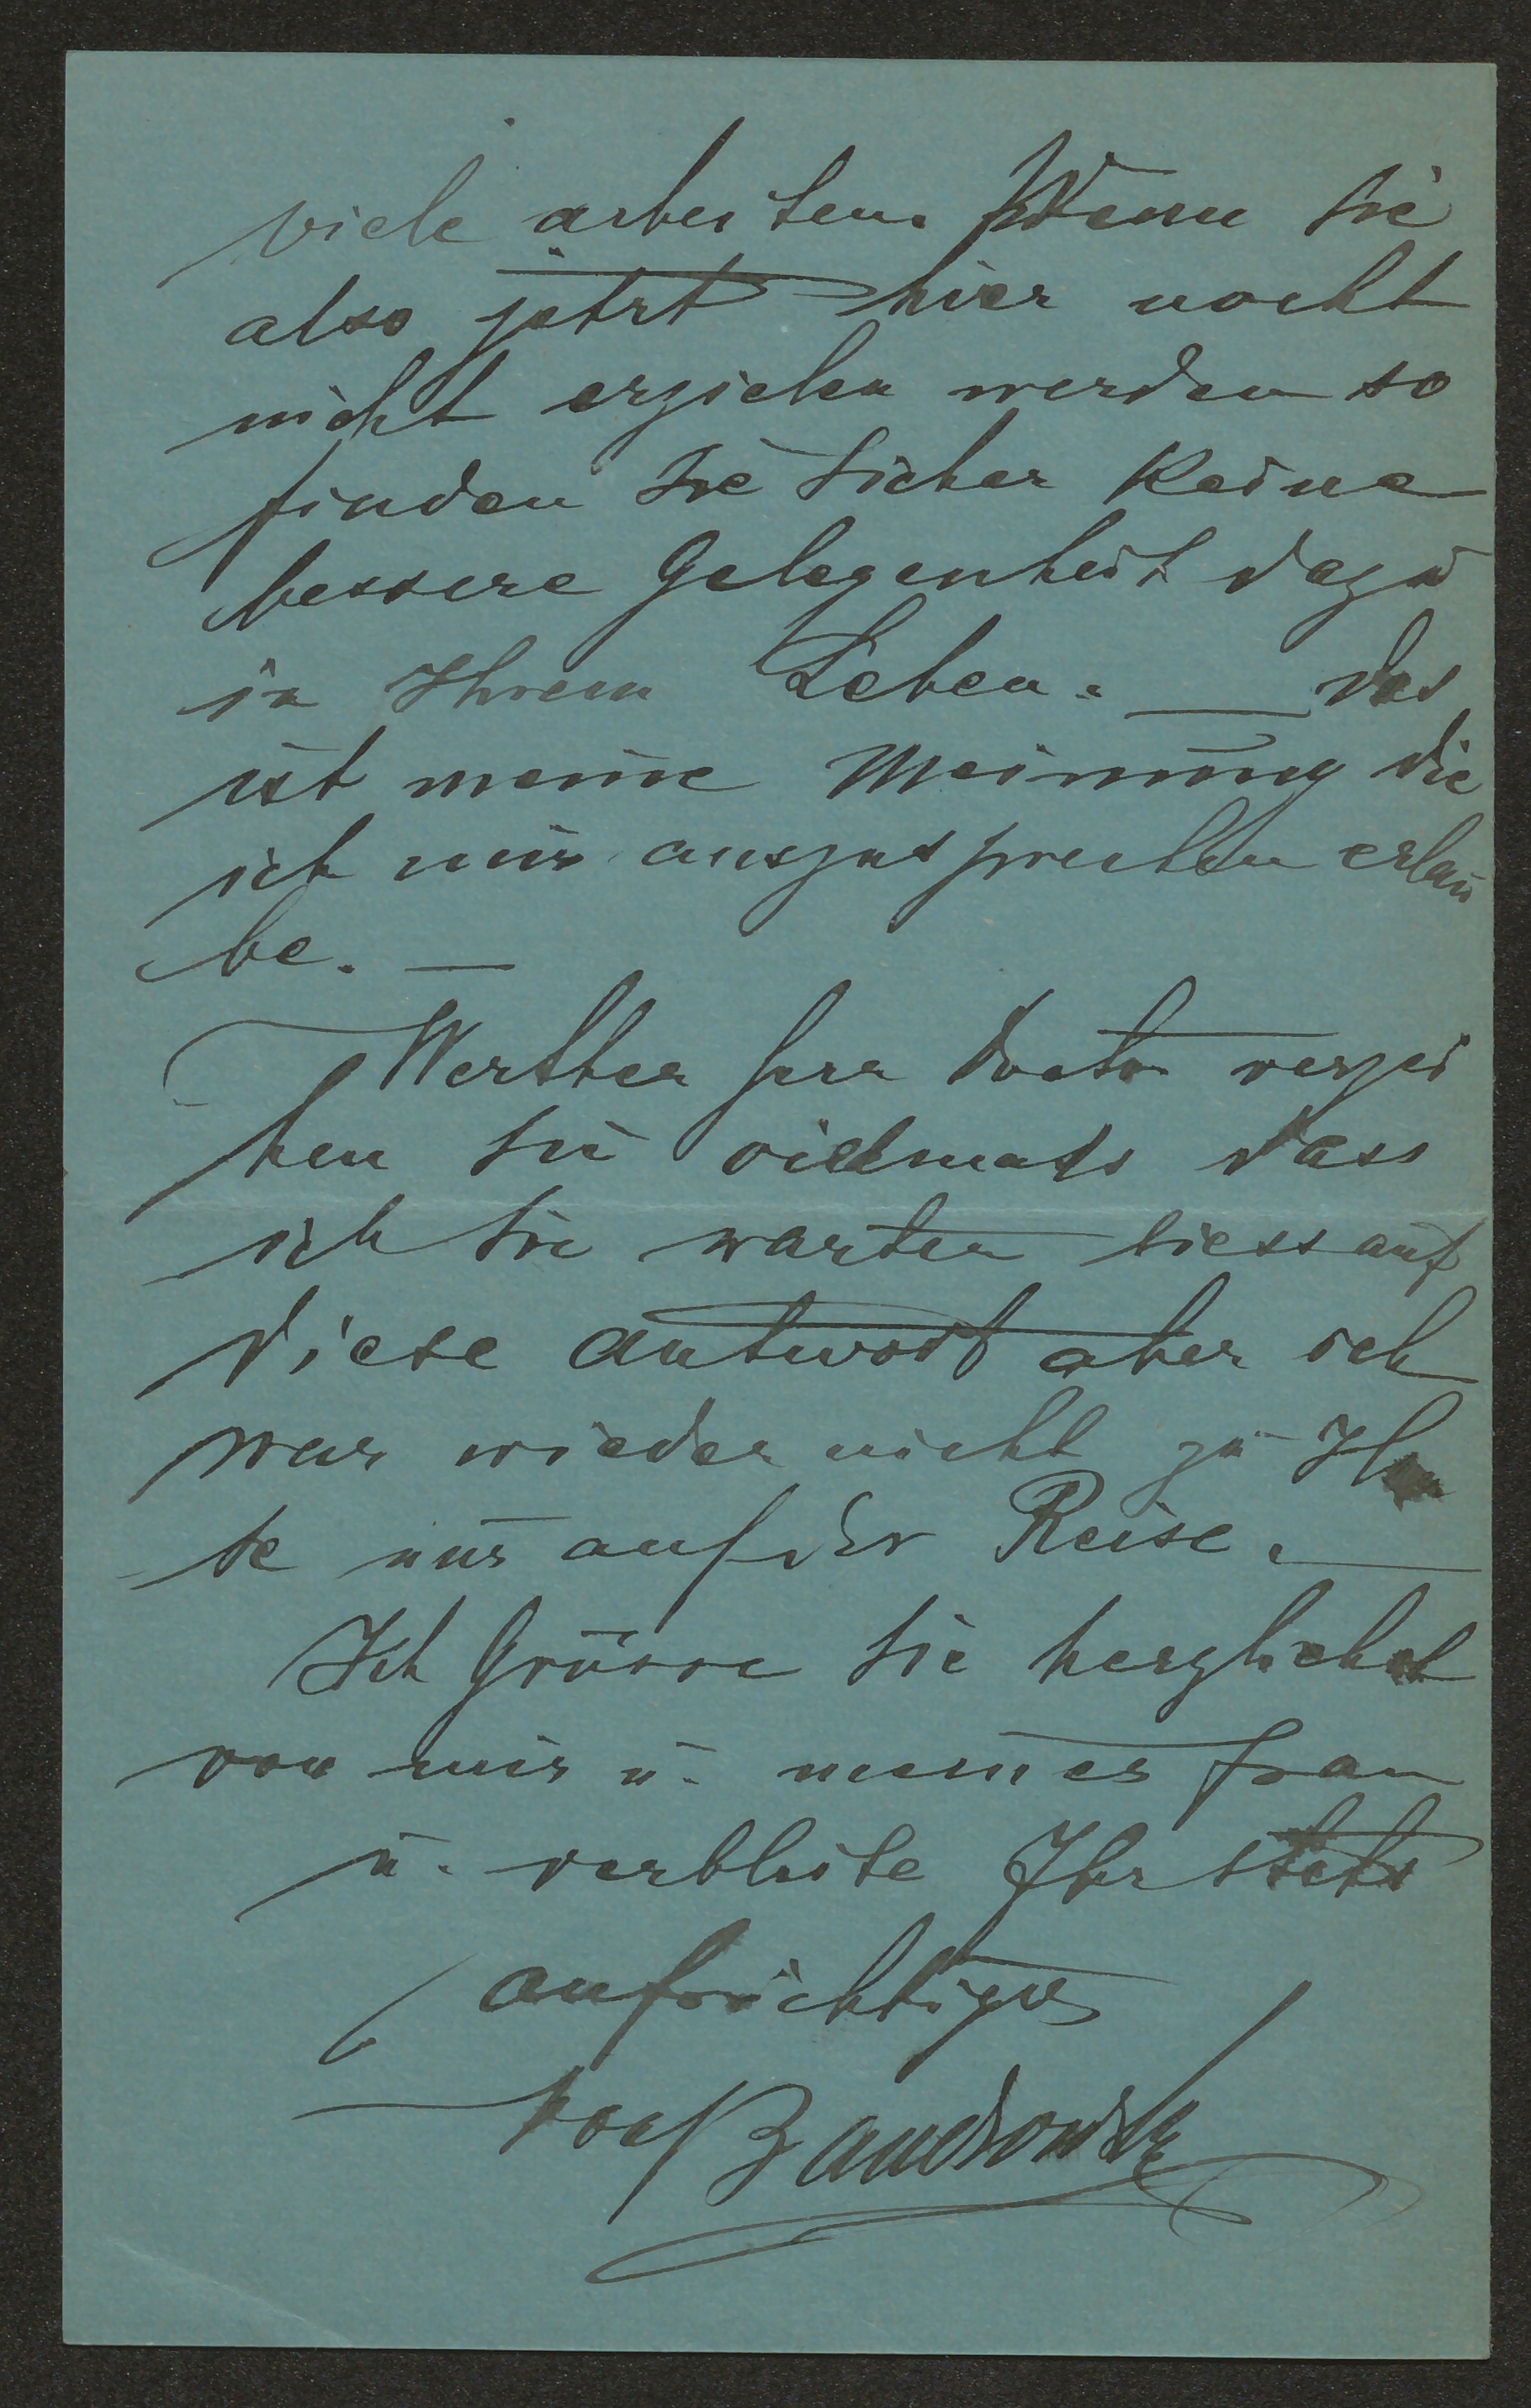 viele arbeiten. Wenn Sie
also jetzt hier nocht
nicht erzielen werden so
finden Sie sicher keine
bessere Gelegenheit dazu
in Ihrem Leben. — Das
ist meine Meinung die
ich mir auszusprechen erlau
be. —
Werther Herr Doctor verzei
hen Sie vielmals dass
ich Sie warten liess auf
diese Antwort aber ich
war wieder nicht zu Hau
se nur auf der Reise. —
Ich Grüsse Sie herzlichst
von mir u. meiner Frau
u. verbleibe Ihr stets
aufrichtiger